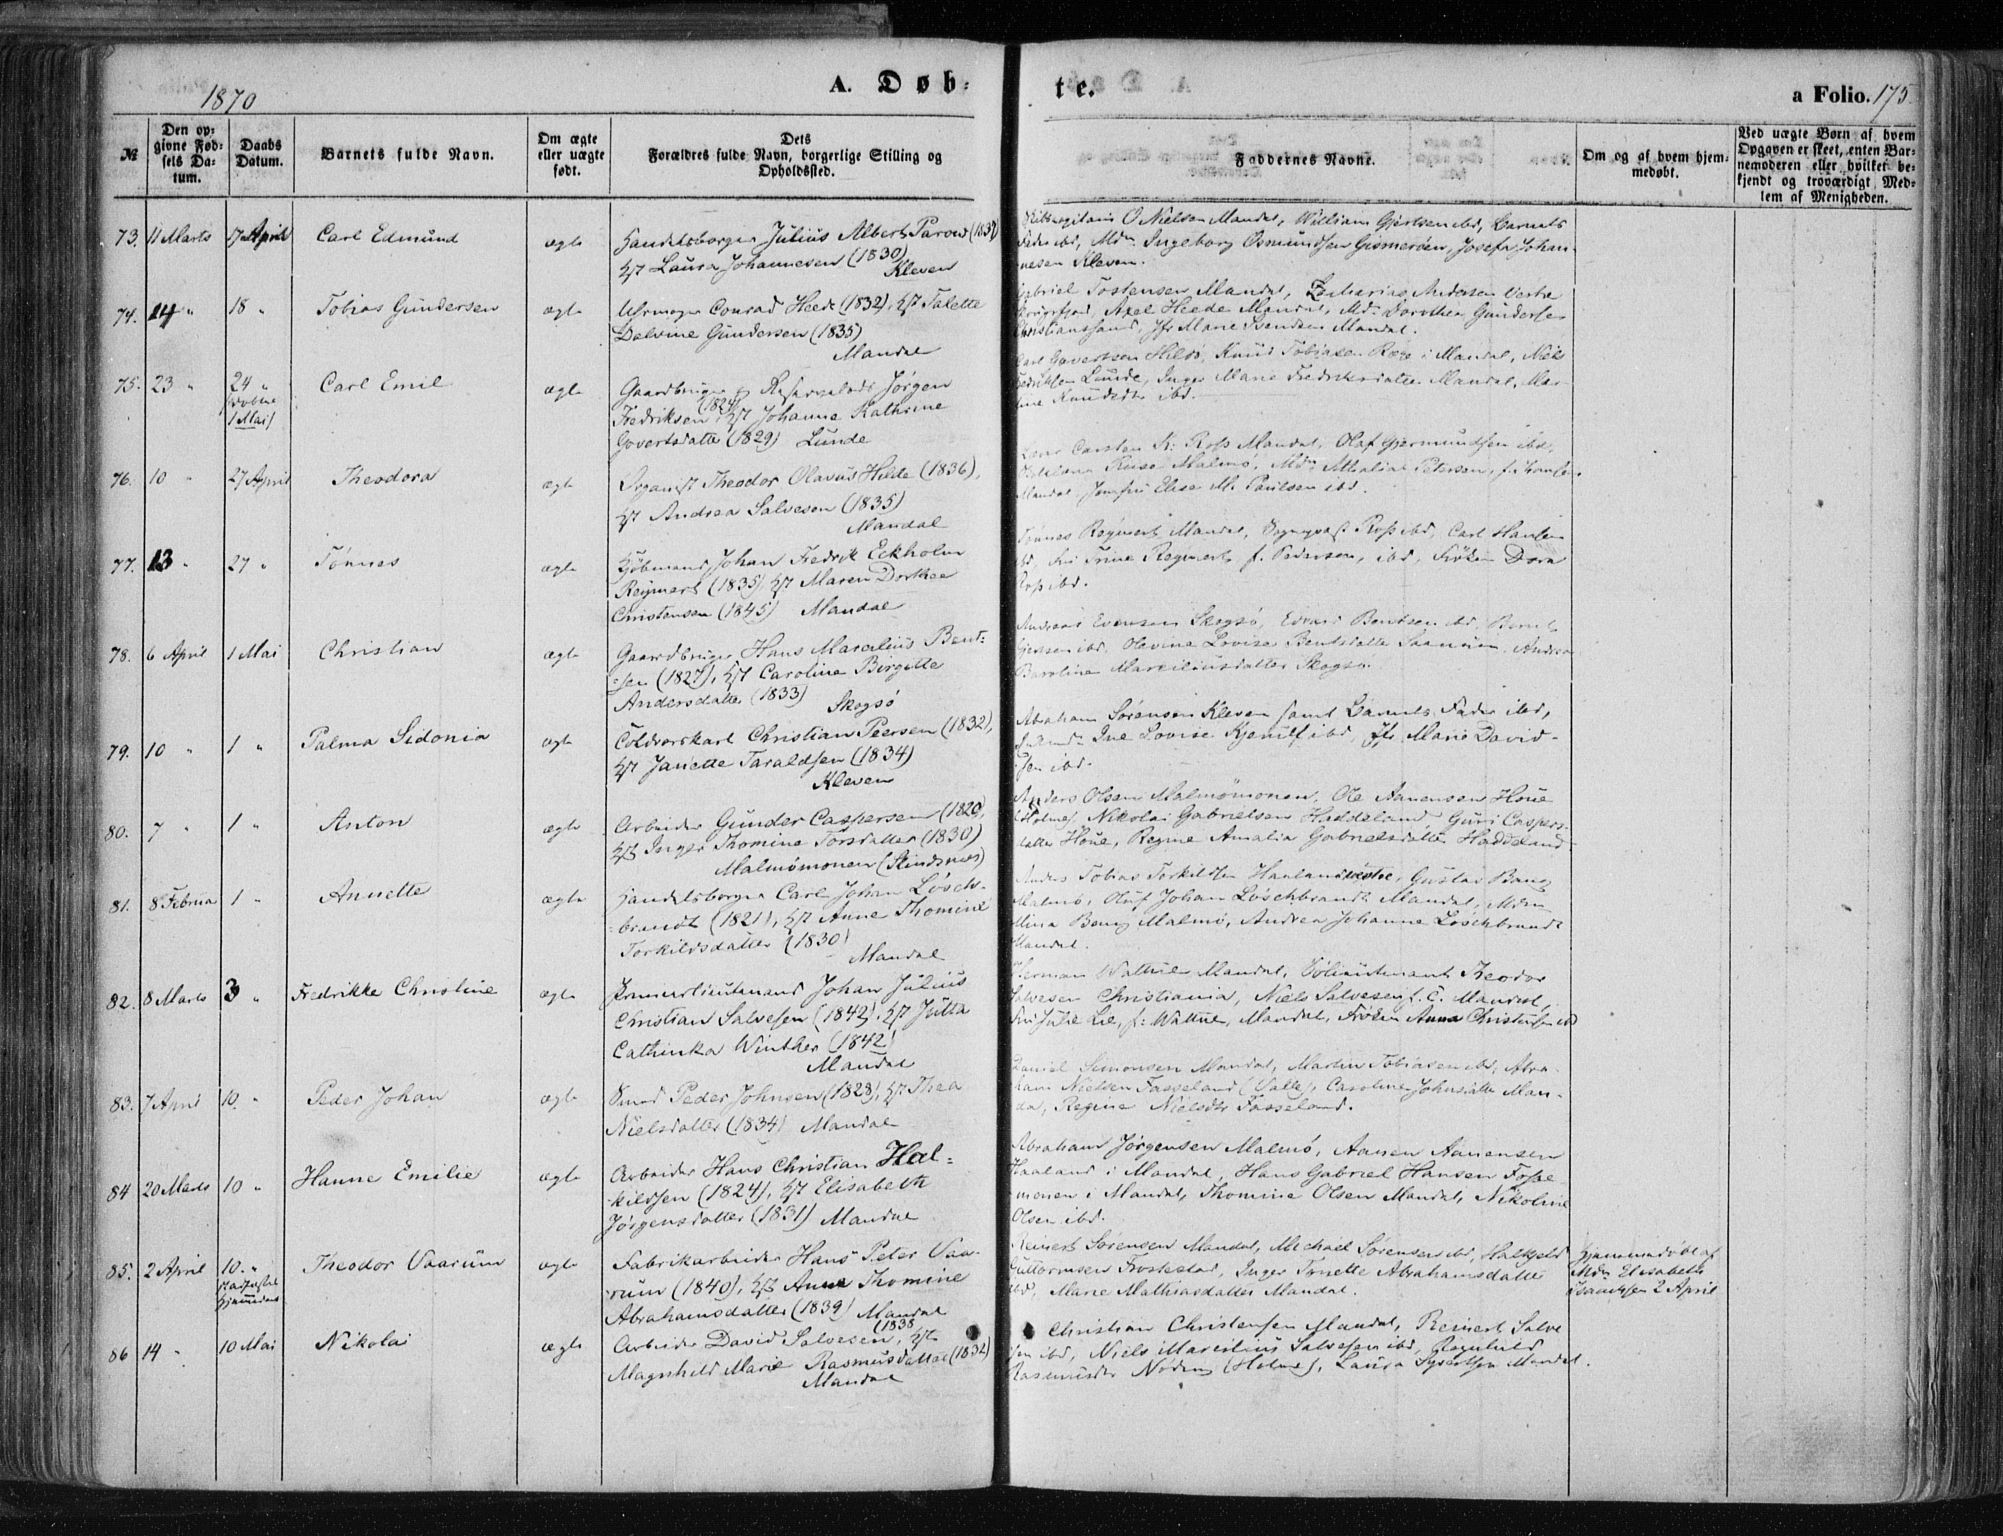 1870
A. Døb=
te.
a Folio. 175.
№
Den op=
givne Fød=
sels Da=
tum.
Daabs
Datum.
Barnets fulde Navn.
Om ægte
eller uægte
født.
Dets
Forældres fulde Navn, borgerlige Stilling og
Opholdssted.
Faddernes Navne.
Om og af hvem hjem=
medøbt.
Ved uægte Børn af hvem
Opgaven er skeet, enten Bar=
nemoderen eller hvilket be=
kjendt og troværdigt Med=
lem af Menigheden.
73. 11 Marts 17 April Carl Edmund ægte Handelsborger Julius Albert Parow
Laura Johannesen (1830)
Kleven
O Nielsen Mandal, William Gjertsen ibd, Barnets
Fader ibd, Mdm Ingeborg Osmundsen Gismerøen, Josefa Johan-
nesen Kleven.
74. 14 " 18 " Tobias Gundersen ægte Uhrmager Conrad Heede (1832), Talette
Dalvine Gundersen (1835)
Mandal
Gabriel Tostensen Mandal, Zacharias Andersen
Axel Heede Mandal, Mdm Dorothea Gundersen
Christianssand, Jfr Marie Svendsen Mandal.
75. 23 " 24 " Carl Emil ægte Gaardbruger og Jørgen
1 Mai
Fredriksen (1824), Johanne Kathrine
Govertsdatter (1829) Lunde
Carl Govertsen Hildø, Knud Tobiasen i Mandal, Niels
Fredriksen Lunde, Inger Marie Fredriksdatter Mandal,
Knudsdtr ibd.
76. 10 " 27 April Theodora ægte Organist Theodor Olavus Hilde (1836),
Andrea Salvesen (1835)
Mandal
Carsten K. Ross Mandal, Olaf Gjermundsen ibd,
Malmø, Mdm Athalia Petersen,
Mandal, Jomfru Elise M. Paulsen ibd.
77. 13 " 27 " Tønnes ægte Kjøbmand Johan Fredrik Eckholm
Reymert (1835), Maren Dorthea
Christensen (1845) Mandal
Tønnes Reymert Mandal, Ross ibd, Carl Hansen
ibd, Fru Trine Reymert f. Pedersen, ibd, Frøken Dora
Ross ibd.
78. 6 April 1 Mai Christian ægte Gaardbruger Hans Marcelius Bent-
sen (1827), Caroline Birgitte
Andersdatter (1833)
Skogsø
Andreas Evensen Skogsø, Edvard Bentsen ibd, Bernt
Gjertsen ibd, Olevine Lovise Bentsdatter Andrea
Caroline Marceliusdatter Skogsø.
79. 10 " 1 " Palma Sidonia ægte Toldvorskarl Christian Peersen (1832),
Janette Taraldsen (1834)
Kleven
Abraham Sørensen Kleven samt Barnets Fader ibd,
Ine Lovise ibd, Jfr. Marie David-
sen ibd.
80. 7 " 1 " Anton ægte Arbeider Gunder Caspersen (1820),
Inger Thomine Torsdatter (1830)
Malmømonen (Skindsnes)
Anders Olsen Malmømonen, Ole Aanensen Houe
(Holme), Nikolai Gabrielsen Haddeland Guri Caspers-
datter Houe, Regine Amalia Gabrielsdatter Haddeland
81. 8 Februar 1 " Annette ægte Handelsborger Carl Johan Løsch-
brandt (1821), Anne Thomine
Torkildsdatter (1830)
Mandal
Anders Tobias Torkildsen Gustav Bang
Malmø, Oluf Johan Løschbrandt Mandal, Mdm
Mina Bang Malmø, Andrea Johanne Løschbrandt
Mandal.
82. 8 Marts 3 " Fredrikke Christine ægte Premierlieutenand Johan Julius
Christian Salvesen (1842), Jutta
Cathinka Winther (1842)
Mandal
Herman Wattne Mandal, Theodor
Salvesen Christiania, Niels Salvesen Mandal,
Fru Julie Lie, f. Wattne, Mandal, Frøken Anna Christensen ibd
83. 7 April 10 " Peder Johan ægte Smed Peder Johnsen (1828), Thea
Nielsdatter (1834) Mandal
Daniel Simonsen Mandal, Martin Tobiasen ibd, Abra-
ham Nielsen Fasseland (Valle), Caroline Johnsdatter Man-
dal, Regine Nielsdtr Fasseland.
84 20 Marts 10 " Hanne Emilie ægte Arbeider Hans Christian Hal-
kildsen (1824), Elisabeth
Jørgensdatter (1831) Mandal
Abraham Jørgensen Malmø, Aanen Aanensen
Haaland i Mandal, Hans Gabriel Hansen Fosse-
monen i Mandal, Thomine Olsen Mandal, Nikoline
Olsen ibd.
85. 2 April 10 " Theodor Vaarum ægte Fabrikarbeider Hans Peter Vaa-
rum (1840), Anne Thomine
Abrahamsdatter (1839) Mandal
Reinert Sørensen Mandal, Michael Sørensen ibd, Halkjeld
Guttormsen Frøstestad, Inger Tonette Abrahamsdatter
ibd, Marie Mathiasdatter Mandal.
Hjemmedøbt af
Mdm Elisabeth
Isaachsen 2 April
86 14 " 10 Mai Nikolai ægte Arbeider David Salvesen (1838,
Magnhild Marie Rasmusdatter (1832)
Mandal
Christian Christensen Mandal, Reinert Salve-
sen ibd, Niels Marcelius Salvesen ibd, Ragnhild
Rasmusdtr Nøding (Holme), Laura Syvertsen Mandal.